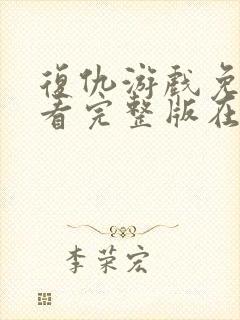 復仇游戲免
看完整版在
李荣宏